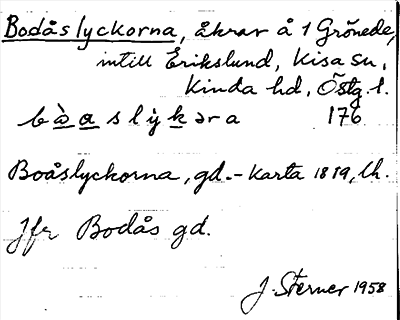 Bodåslyckorna, åkrar å 1 Grönede,
intill Erikslund, Kisa sn,
Kinda hd, Östg. l.
bọ̀ a s l ỳ k ə r a 176
Boåslyckorna, gd. - Karta 1819, lh.
Jfr Bodås gd.
J. Sterner 1958